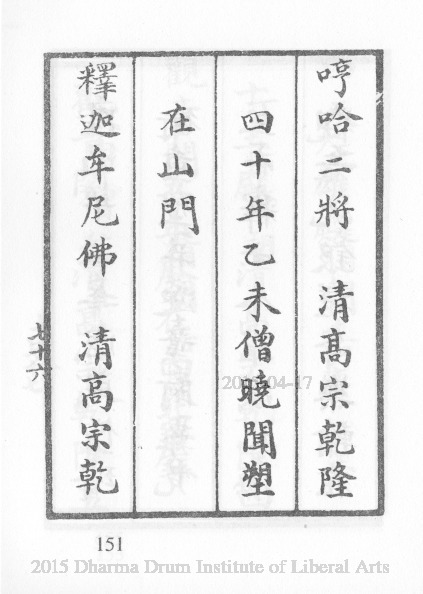 哼哈二將 清高宗乾隆
四十年乙未僧曉聞塑
在山門
釋迦牟尼佛 清高宗乾
七十六
151
2015 Dharma Drum Institute of Liberal Arts